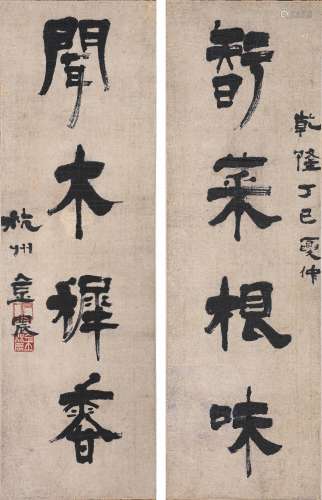 乾隆丁巳夏仲
智菜根味
聞木樨香
杭州金農